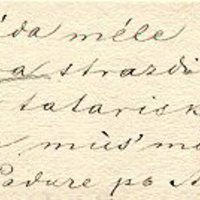 da mēle
a strazdi
tatarisk
mūs' m
Padure po